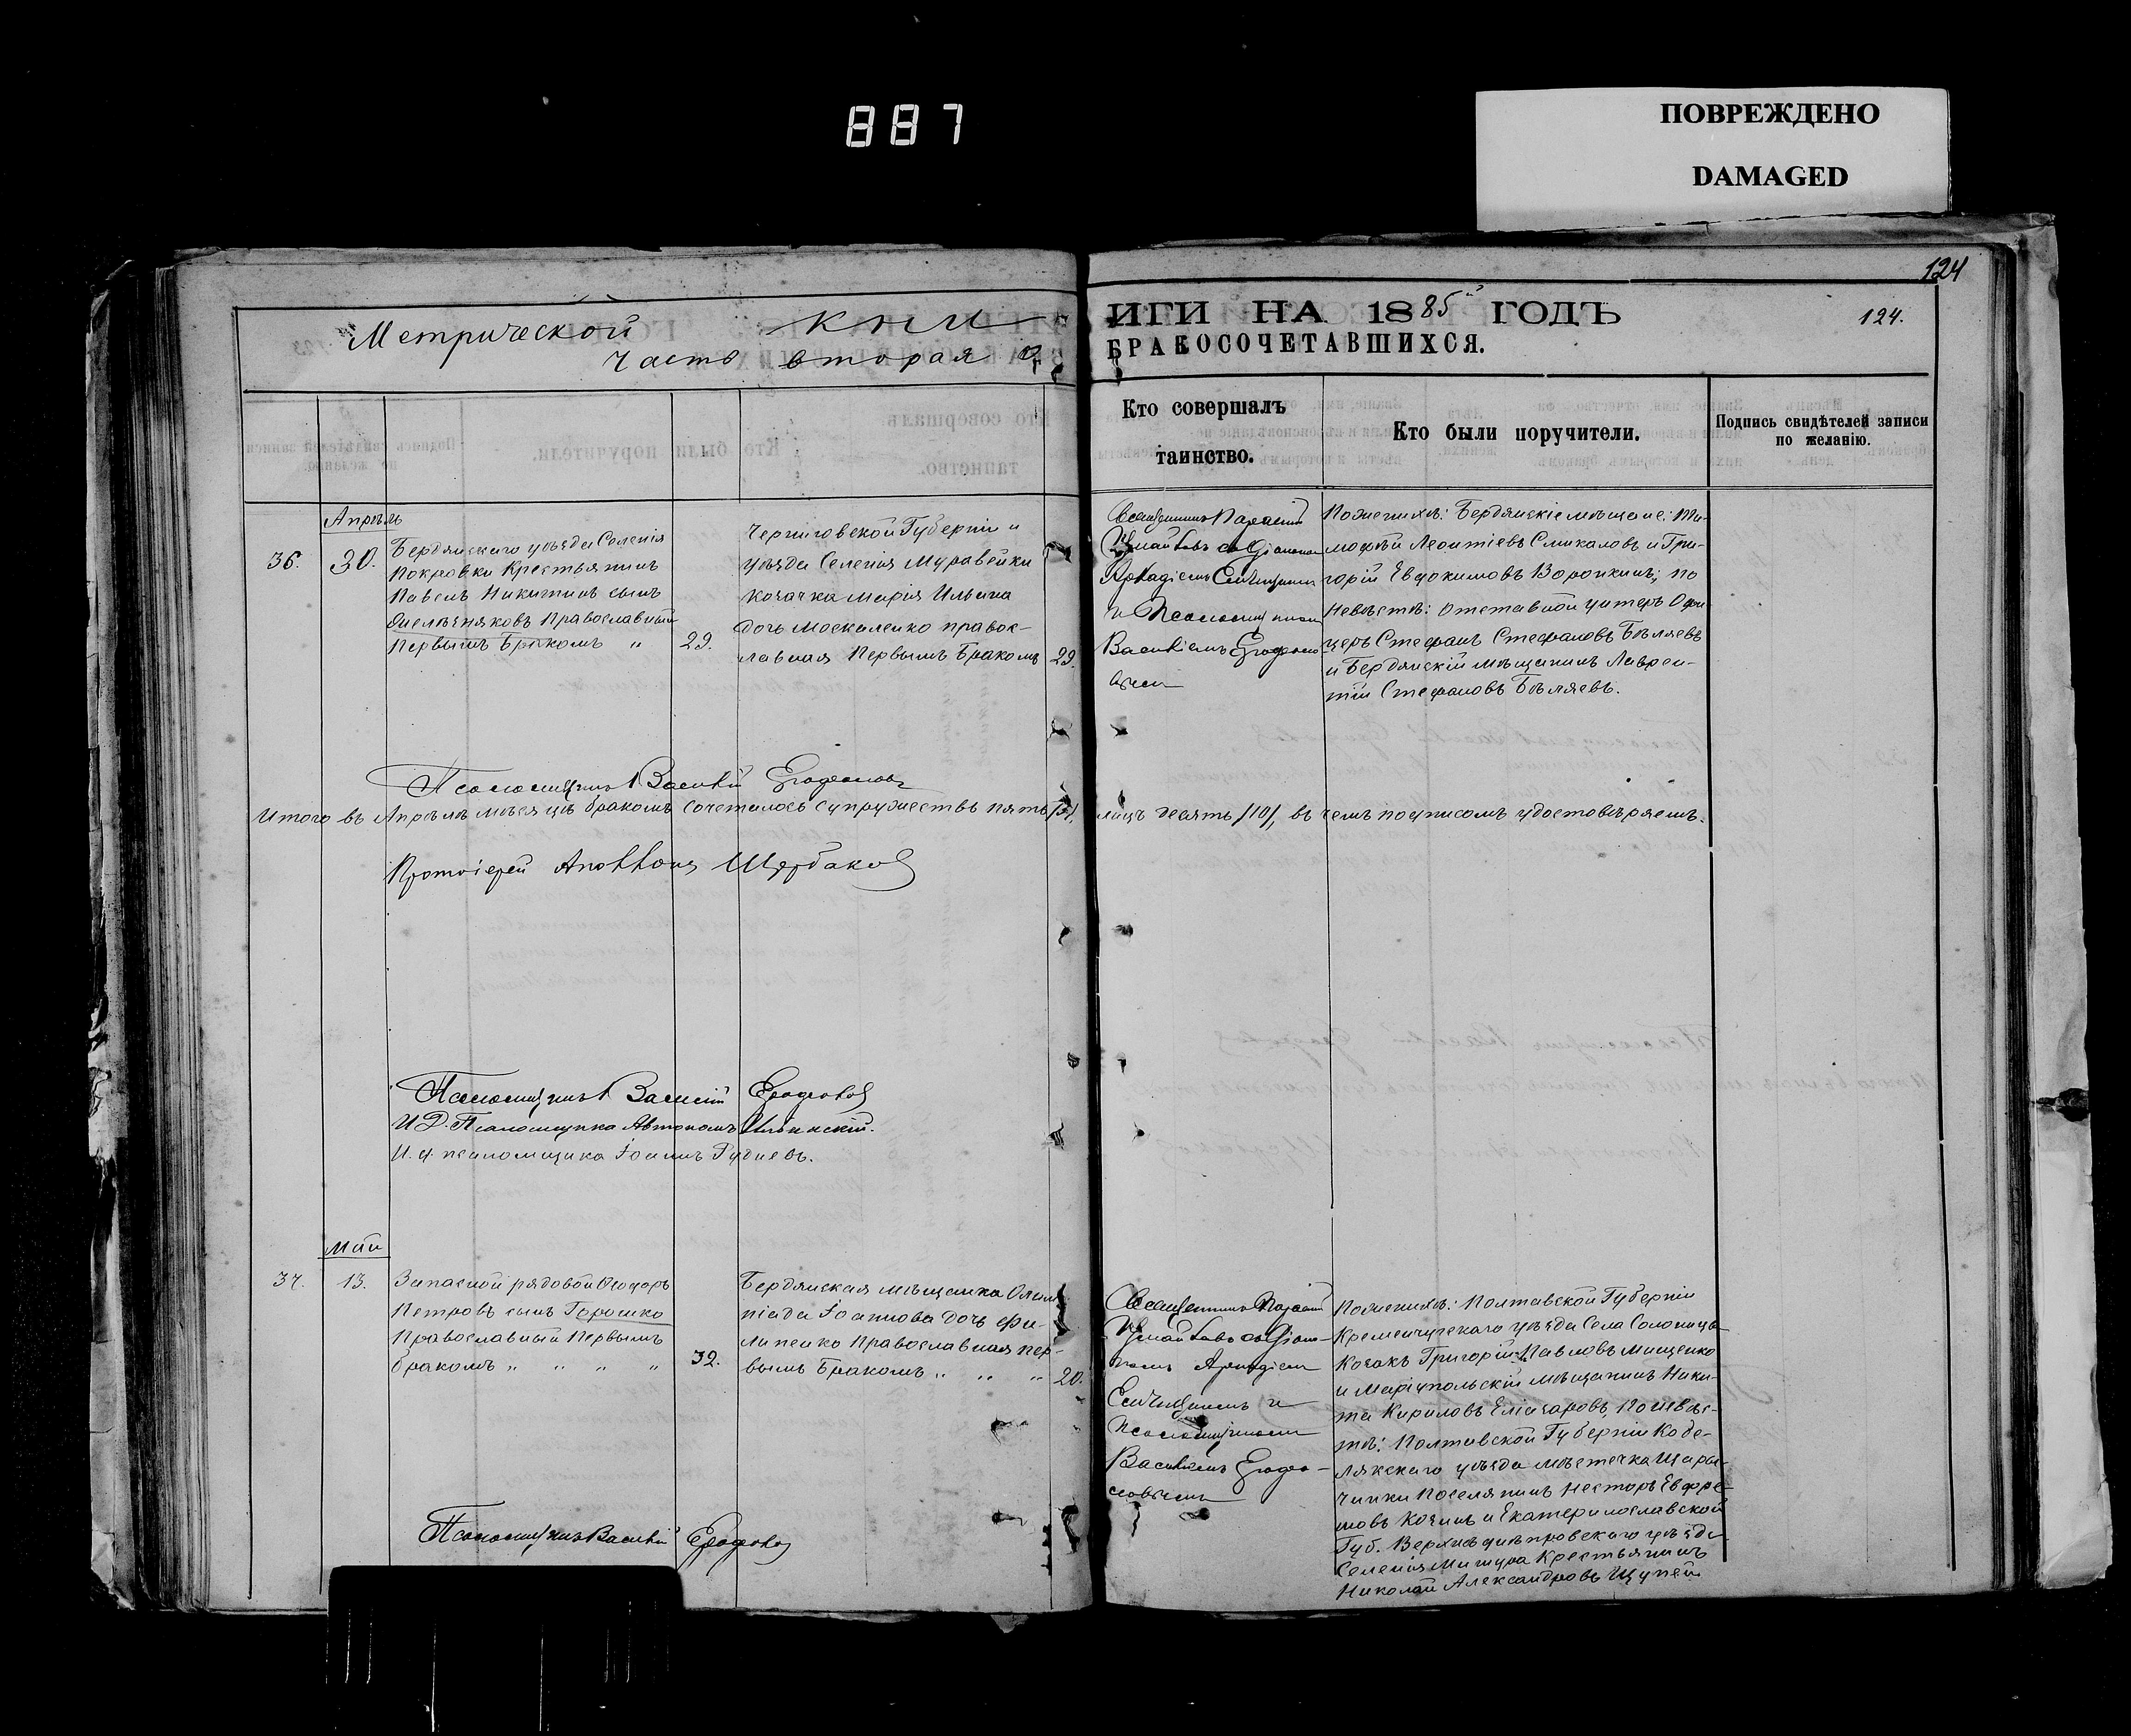 887
ПОВРЕЖДЕНО
DAMAGED
124
Метрической кни
часть вторая о
ИГИ НА 1885й ГОДЪ
БРАКОСОЧЕТАВШИХСЯ.
124.
Кто совершалъ
таинство.
Кто были поручители.
Подпись свидѣтелей записи
по желанію.
Апрѣль
36.
30.
Бердянскаго уѣзда Селенія
Покровки Крестьянинъ
Павелъ Никитинъ сынъ
Православный
Первымъ Бракомъ "
29.
Черниговской Губерніи и
уѣзда Селенія Муравейки
козачка Марія Ильина
дочь Москаленко правос-
лавная Первымъ Бракомъ
29.
Священникъ
съ Діакономъ
Аркадіемъ
и Псаломщикомъ
Василіемъ
По женихѣ: Бердянскіе мѣщане: Ти-
мофѣй Леонтіевъ Смикаловъ и Гри-
горій Евдокимовъ Воронкинъ; по
невѣстѣ: отставной унтеръ Офи-
церъ Стефанъ Стефановъ Бѣляевъ
и Бердянскій мѣщанинъ Лаврен-
тій Стефановъ Бѣляевъ.
Псаломщикъ Василій
Итого въ Апрѣлѣ мѣсяцѣ бракомъ сочеталось супружествъ пять /5/,
лицъ десять /10/, въ чемъ подписомъ удостовѣряемъ.
Протоіерей Аполлонъ Щербаковъ
Псаломщикъ Василій
И.Д. Псаломщика Автономъ Ильинскій.
И. д. псаломщика Іоаннъ Гудиевъ.
Май
37.
13.
Запасной рядовой Ѳеодоръ
Петровъ сынъ Горошко
Православный Первымъ
бракомъ " " " "
32.
Бердянская мѣщанка Олим-
піада Іоаннова дочь Фи-
липенко Православная пер-
вымъ Бракомъ " " "
20.
Священникъ
съ Діако-
номъ Аркадіемъ
и
Псаломщикомъ
Василіемъ
По женихѣ: Полтавской Губерніи
Кременчугскаго уѣзда Села Солоницы
Козакъ Григорій Павловъ Мищенко
и Маріупольскій мѣщанинъ Ники-
та Кириловъ Еліазаровъ, по невѣс-
тѣ: Полтавской Губерніи Кобе-
лякскаго уѣзда мѣстечка
Поселянинъ Несторъ Ефре-
мовъ Козинъ и Екатеринославской
Губ. Верхнеднѣпровскаго уѣзда
Селенія Мишура Крестьянинъ
Николай Александровъ Щупей
Псаломщикъ Василій